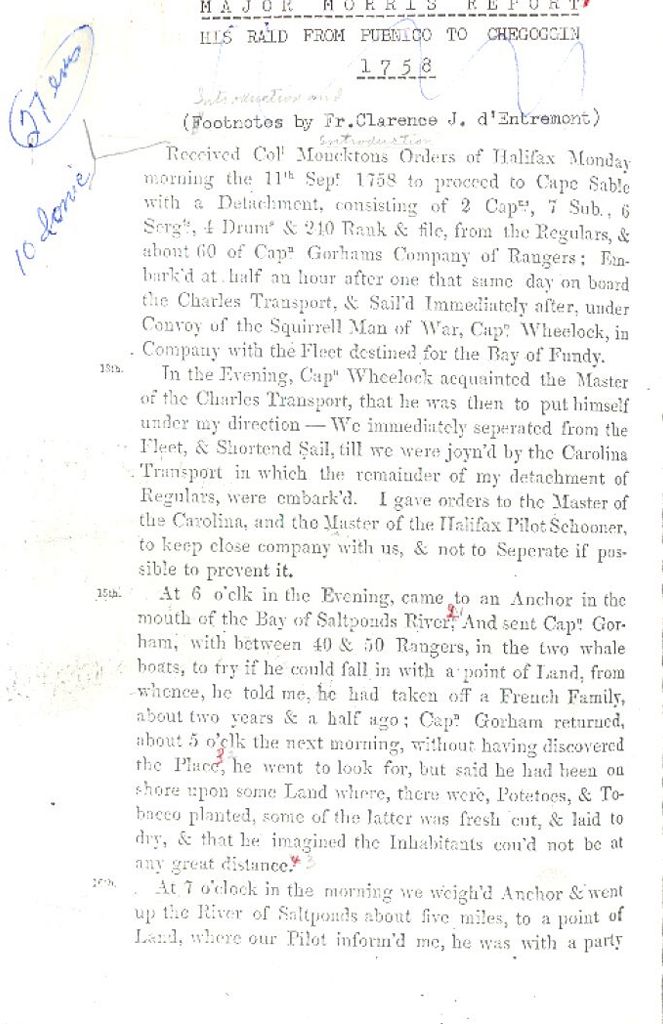 MAJOR MORRIS REPORT
HIS RAID FROM PUBNICO TO CHEGOGGIN
1758
Introduction and
(Footnotes by Fr.Clarence J. d'Entremont)
Introduction
27 ems
10 Ionic
Received Colˡ Moncktons Orders of Halifax Monday
morning the 11ᵗʰ Sepᵗ 1758 to proceed to Cape Sable
with a Detachment, consisting of 2 Capⁿˢ, 7 Sub., 6
Sergᵗˢ, 4 Drumˢ & 240 Rank & file, from the Regulars, &
about 60 of Capⁿ Gorhams Company of Rangers; Em-
bark'd at half an hour after one that same day on board
the Charles Transport, & Sail'd Immediately after, under
Convoy of the Squirrell Man of War, Capⁿ Wheelock, in
Company with the Fleet destined for the Bay of Fundy.
13th. In the Evening, Capⁿ Wheelock acquainted the Master
of the Charles Transport, that he was then to put himself
under my direction — We immediately seperated from the
Fleet, & Shortend Sail, till we were joyn'd by the Carolina
Transport in which the remainder of my detachment of
Regulars, were embark'd. I gave orders to the Master of
the Carolina, and the Master of the Halifax Pilot Schooner,
to keep close company with us, & not to Seperate if pos-
sible to prevent it.
15th. At 6 o'clk in the Evening, came to an Anchor in the
mouth of the Bay of Saltponds River, And sent Capⁿ Gor-
ham, with between 40 & 50 Rangers, in the two whale
boats, to try if he could fall in with a point of Land, from
whence, he told me, he had taken off a French Family,
about two years & a half ago; Capⁿ Gorham returned,
about 5 o'clk the next morning, without having discovered
the Place, he went to look for, but said he had been on
shore upon some Land where, there were, Potetoes, & To-
bacco planted, some of the latter was fresh cut, & laid to
dry, & that he imagined the Inhabitants cou'd not be at
any great distance. 4 3
16th. At 7 o'clock in the morning we weigh'd Anchor & went
up the River of Saltponds about five miles, to a point of
Land, where our Pilot inform'd me, he was with a party